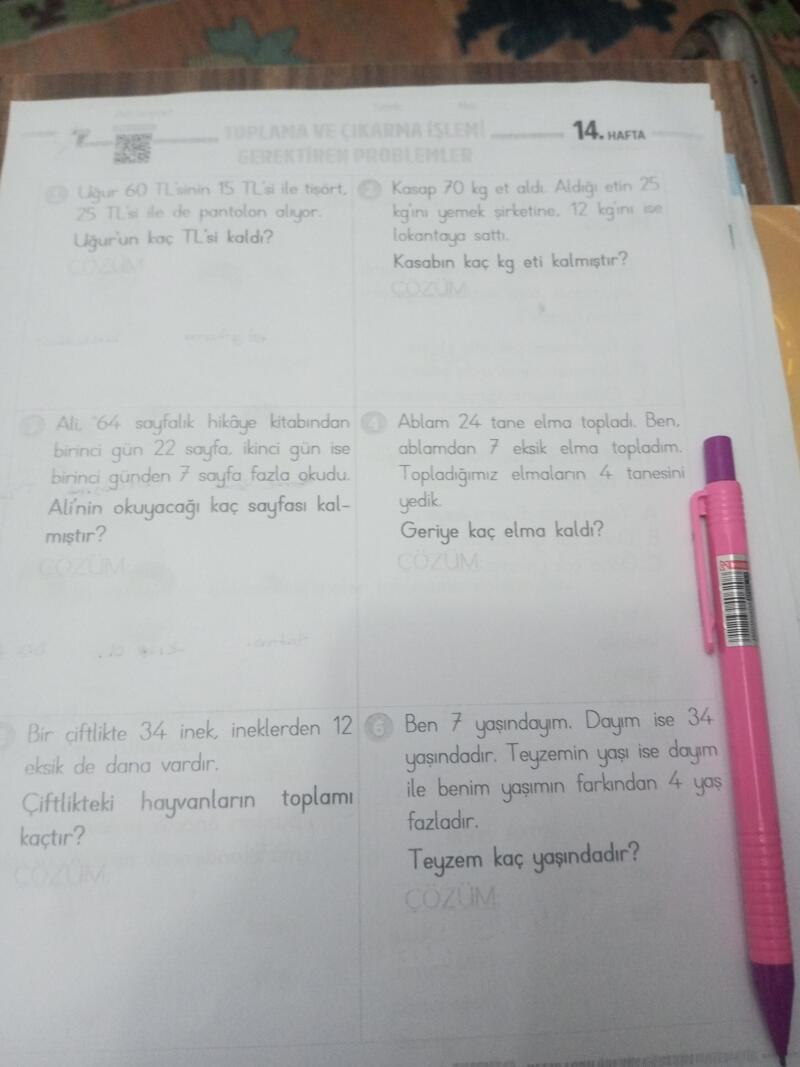 TOPLAMA VE ÇIKARMA İŞLEMİ
GEREKTİREN PROBLEMLER
14. HAFTA
Uğur 60 TL'sinin 15 TL'si ile tişört,
25 TL'si ile de pantolon alıyor.
Uğur'un kaç TL'si kaldı?
ÇÖZÜM:
2 Kasap 70 kg et aldı. Aldığı etin 25
kg'ını yemek şirketine, 12 kg'ını ise
lokantaya sattı.
Kasabın kaç kg eti kalmıştır?
ÇÖZÜM:
3 Ali, 64 sayfalık hikâye kitabından
birinci gün 22 sayfa, ikinci gün ise
birinci günden 7 sayfa fazla okudu.
Ali'nin okuyacağı kaç sayfası kal-
mıştır?
ÇÖZÜM:
4 Ablam 24 tane elma topladı. Ben,
ablamdan 7 eksik elma topladım.
Topladığımız elmaların 4 tanesini
yedik.
Geriye kaç elma kaldı?
ÇÖZÜM:
Bir çiftlikte 34 inek, ineklerden 12
eksik de dana vardır.
Çiftlikteki hayvanların toplamı
kaçtır?
ÇÖZÜM:
6 Ben 7 yaşındayım. Dayım ise 34
yaşındadır. Teyzemin yaşı ise dayım
ile benim yaşımın farkından 4 yaş
fazladır.
Teyzem kaç yaşındadır?
ÇÖZÜM: